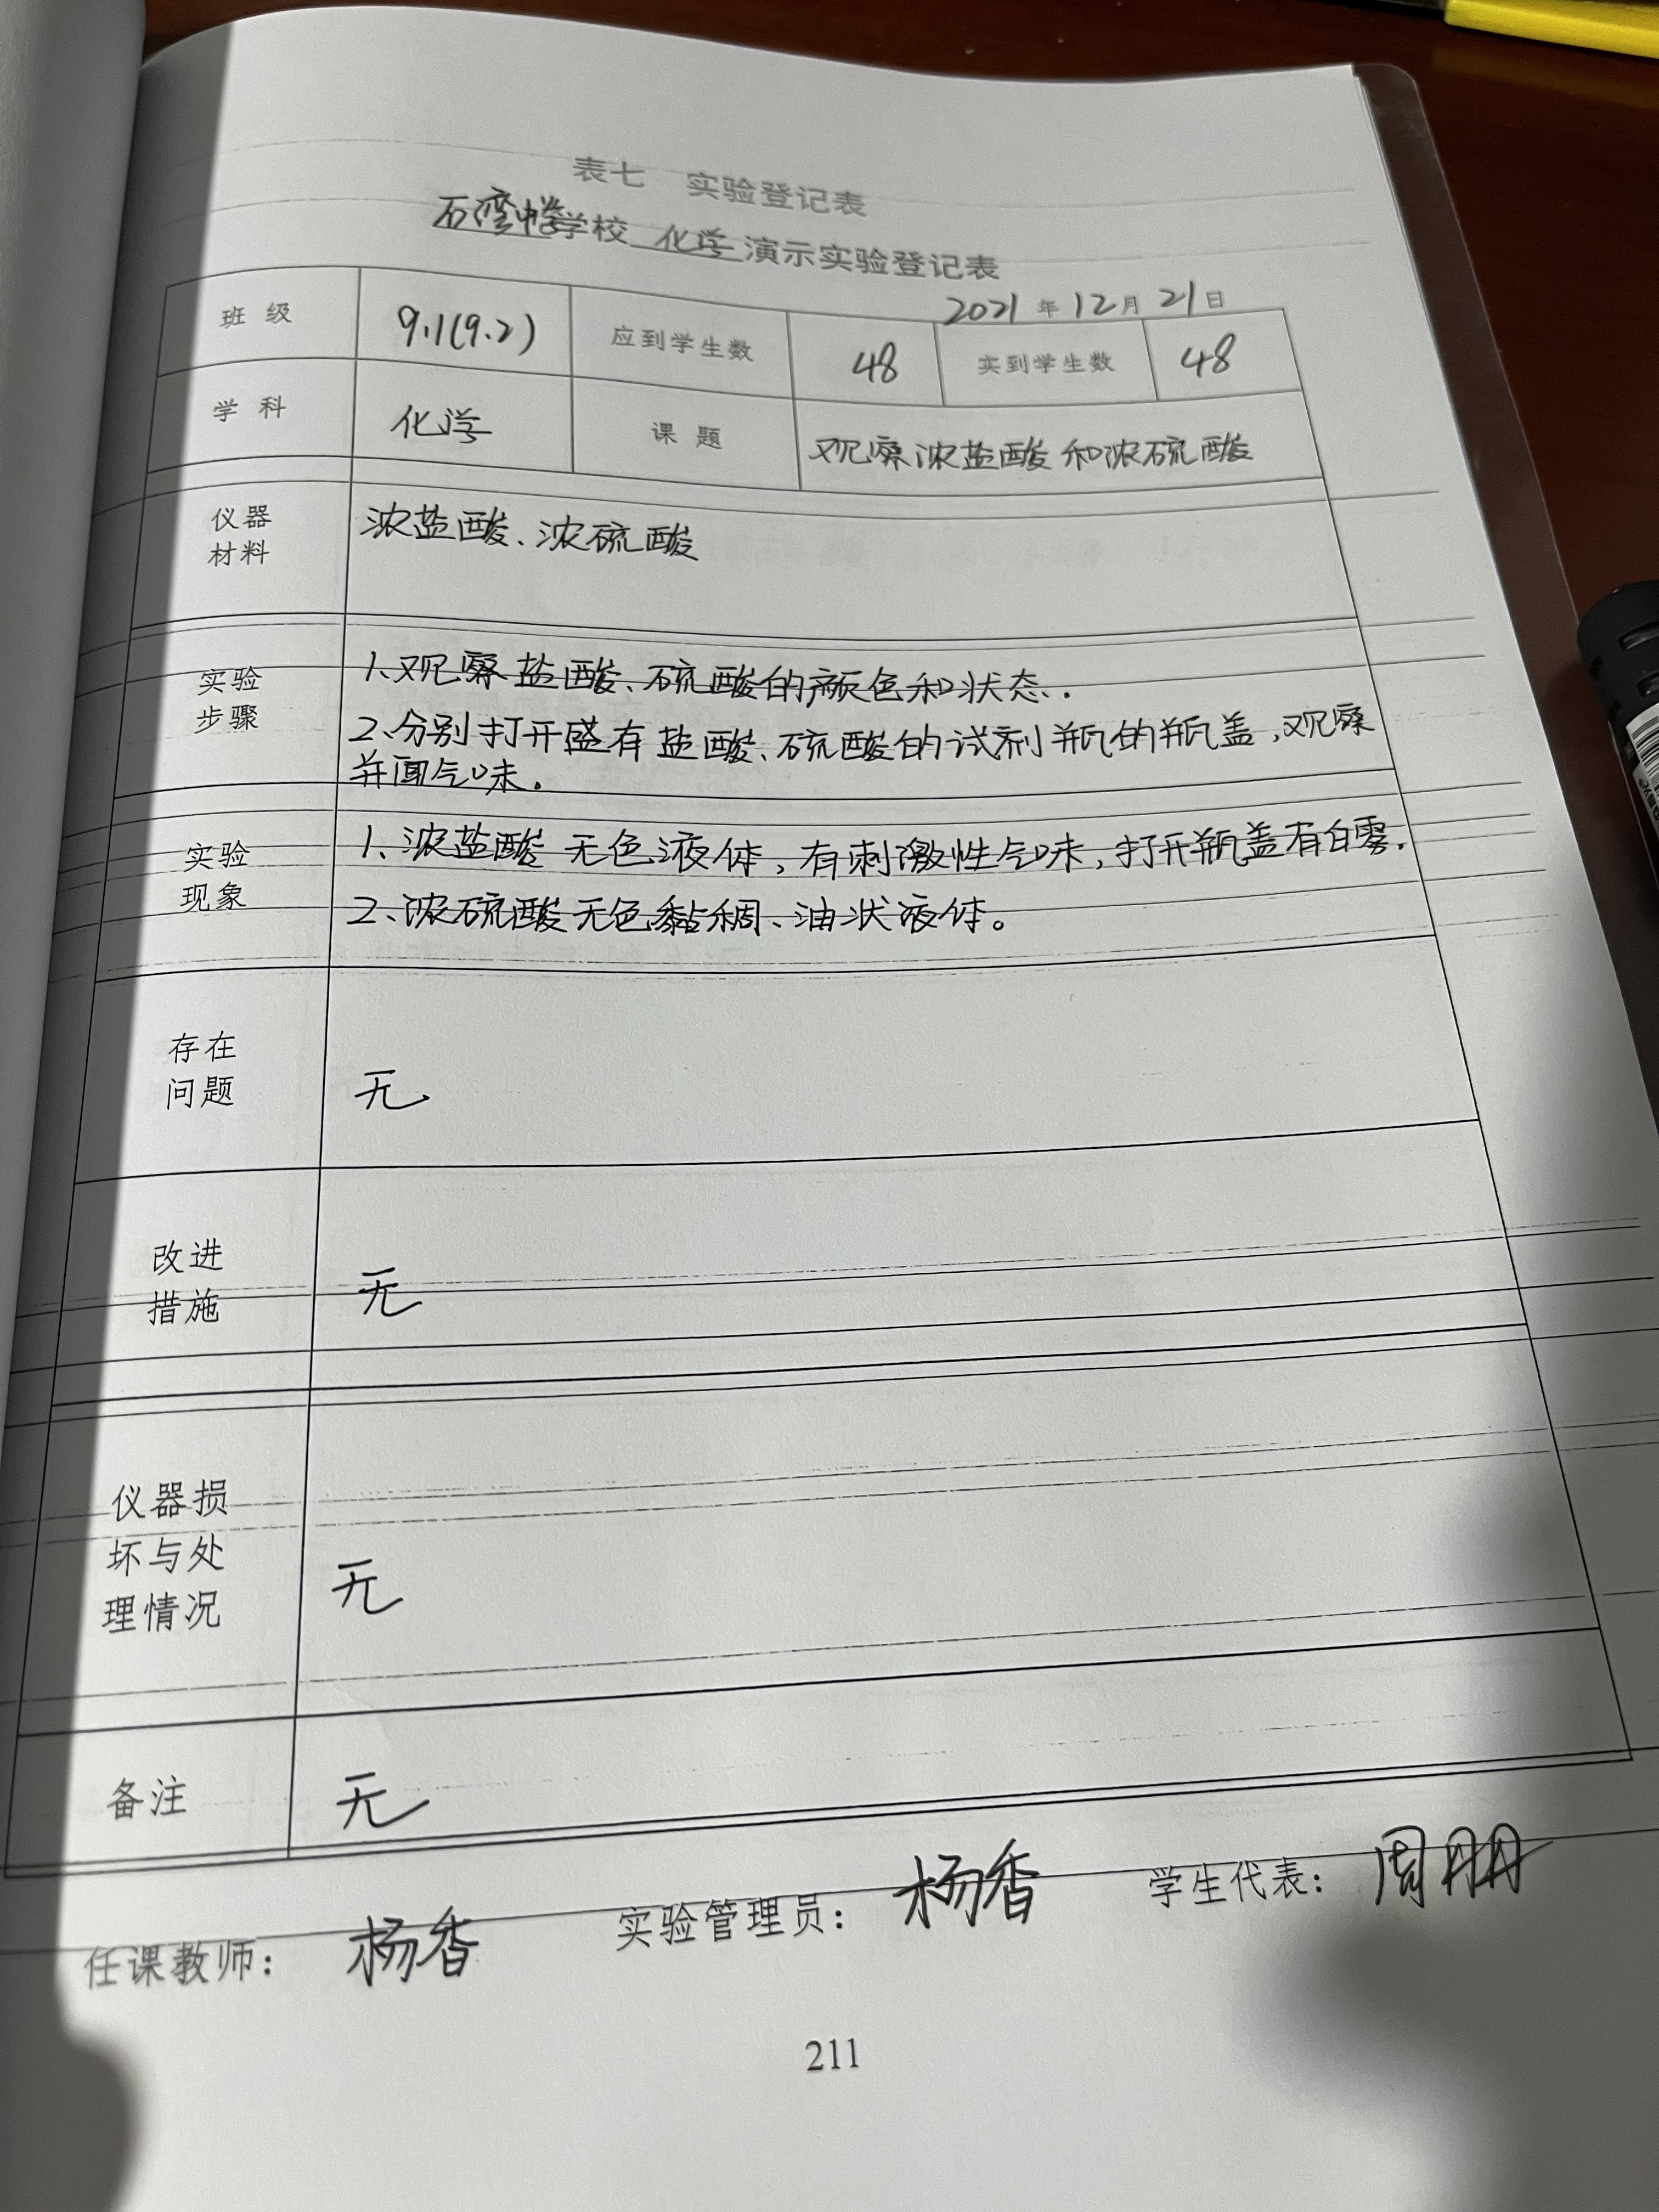 表七 实验登记表
石湾中学学校 化学 演示实验登记表
2021 年 12 月 21 日
班级 9.1(9.2) 应到学生数 48 实到学生数 48
学科 化学 课题 观察浓盐酸和浓硫酸
仪器材料 浓盐酸、浓硫酸
实验步骤 1、观察盐酸、硫酸的颜色和状态.
2、分别打开盛有盐酸、硫酸的试剂瓶的瓶盖,观察
并闻气味。
实验现象 1、浓盐酸无色液体,有刺激性气味,打开瓶盖有白雾.
2、浓硫酸无色黏稠、油状液体。
存在问题 无
改进措施 无
仪器损坏与处理情况 无
备注 无
任课教师: 杨香 实验管理员: 杨香 学生代表: 周朋
211